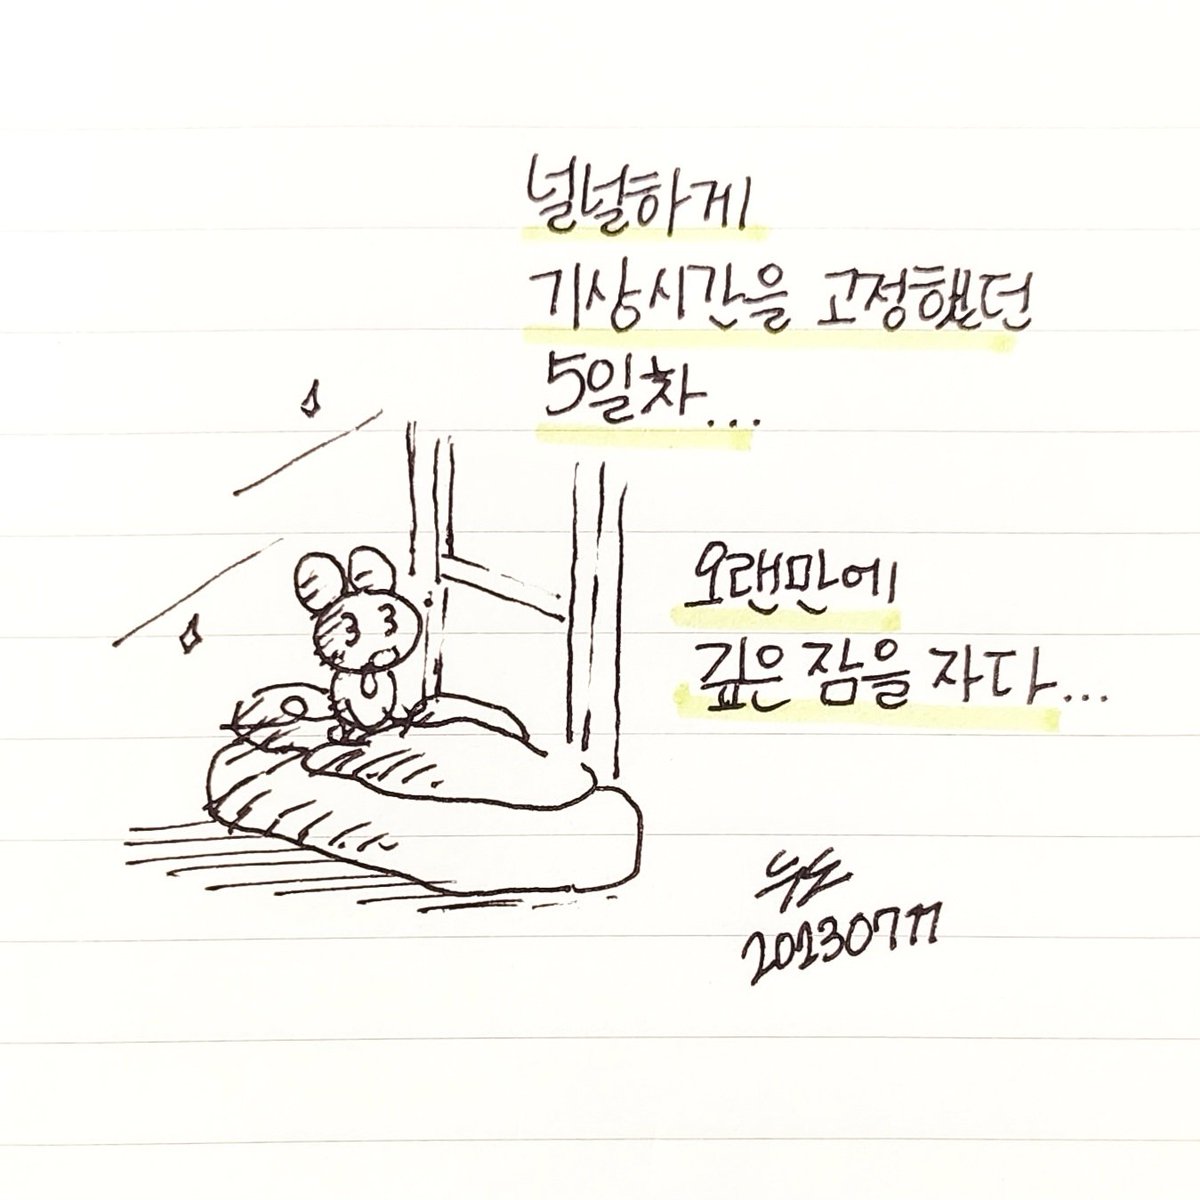 널널하게
기상시간을 고정했던
5일차...
오랜만에
깊은 잠을 자다...